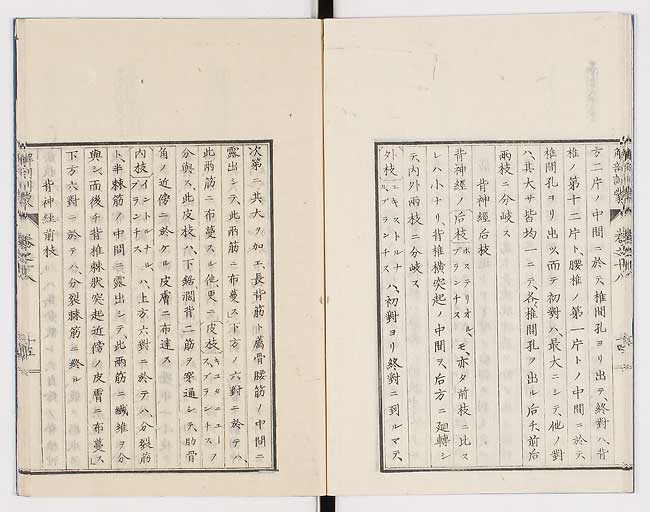 方二片ノ中間ニ於テ椎間孔ヨリ出テ、終對ハ、背
椎ノ第十二片ト、腰椎ノ第一片トノ中間ニ於テ、
椎間孔ヨリ出ツ、而テ初對ハ、最大ニシテ、他ノ對
ハ、其大サ皆均一ニテ、各椎間孔ヲ出ル后チ前后
兩枝ニ分岐ス
背神經后枝
背神經ノ后枝ポステリオル、ブランチスモ、亦タ前枝ニ比ス
レハ小ナリ、背椎横突起ノ中間ヲ、后方ニ廻轉シ
テ、内外兩枝ニ分岐ス、
外枝エキストルナル、ブランチスハ、初對ヨリ終對ニ到ルマデ、
次第ニ其大ヲ加エ、長背筋ト薦骨腰筋ノ中間ニ
露出シテ、此兩筋ニ布蔓ス、下方ノ六對ニ於テハ、
此兩筋ニ布蔓スル他、更ニ皮枝キユタニユース、ブランチスヲ
分與ス、此皮枝ハ、下鋸濶背二筋ヲ穿通シテ、肋骨
角ノ近傍ニ於ケル皮膚ニ布達ス
内枝イントルナル、ブランチスハ、上方六對ニ於テハ、分裂筋
ト、半棘筋ノ中間ニ露出シテ、此兩筋ニ纎維ヲ分
與シ、而後チ背椎棘狀突起近傍ノ皮膚ニ布蔓ス、
下方六對ニ於テハ、分裂棘筋ニ終ル
背神經前枝